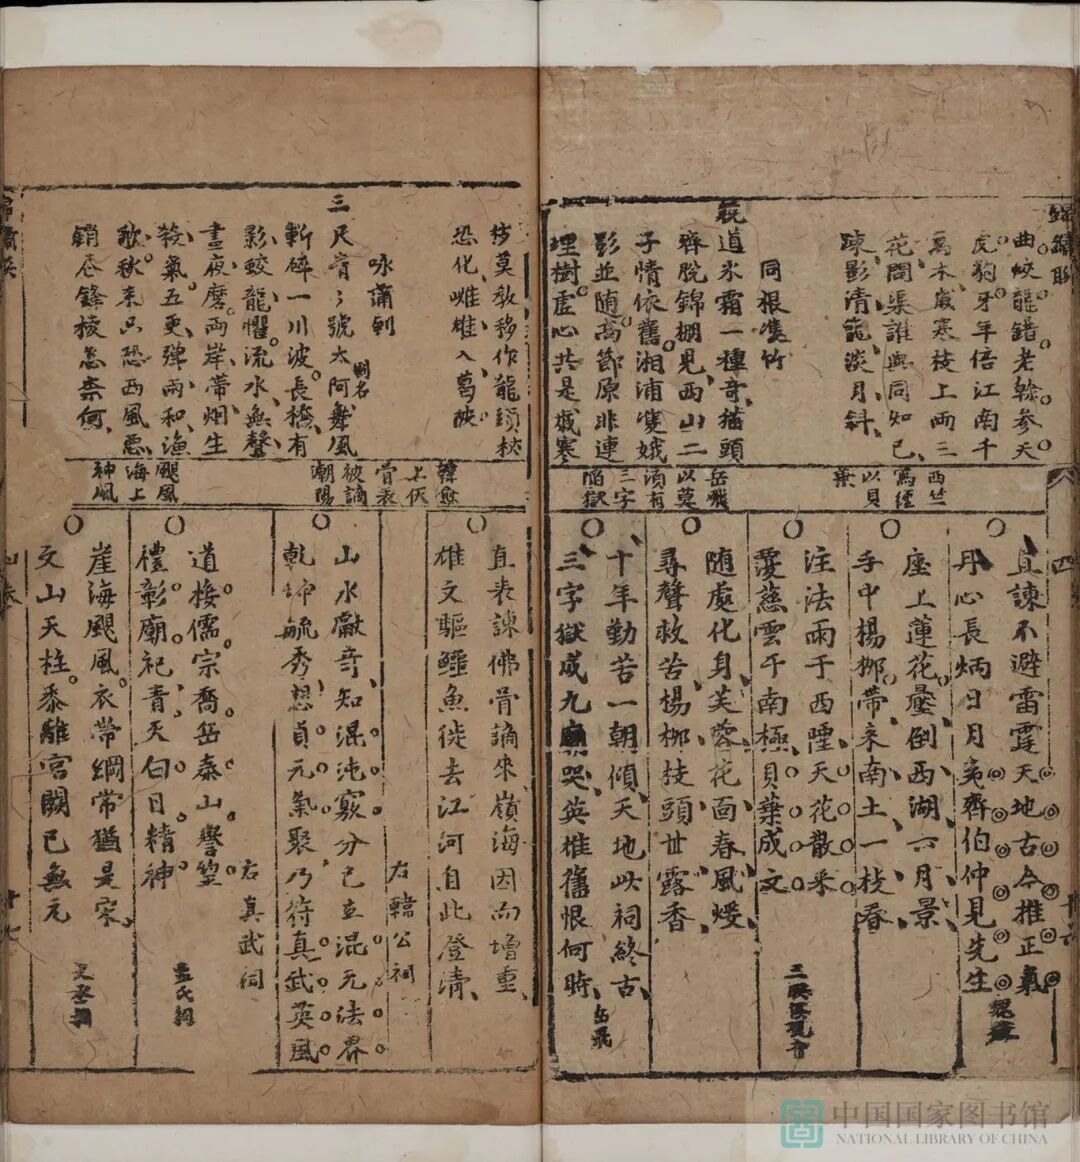 曲蛟龍錯老幹參天
虎豹牙年倍江南千
萬木歲寒枝上兩三
花閑渠誰與同知己
疎影清寵淡月斜
同根雙竹
說道氷霜一種奇猫頭
齊脫錦棚兒西山二
子情依舊湘浦雙娥
影並随高節原非連
理樹虛心共是歲寒
西竺
寫經
以貝
葉
岳飛
以莫
須有
三字
陷獄
直諫不避雷霆天地古今推正氣
丹心長炳日月夷齊伯仲見先生
座上蓮花疊倒西湖六月景
手中楊柳帶来南土一枝春
注法雨于西陲天花散采
靄慈雲于南極貝葉成文
随處化身芙蓉花面春風煖
尋聲救苦楊柳枝頭甘露香
十年勤苦一朝傾天地此祠終古
三字獄成九廟哭英雄舊恨何時
岳飛
枝莫教移作龍頭杖
恐化雌雄入葛陂
咏蒲劍
三尺青々號太阿舞風
劍名
斬碎一川波長橋有
影蛟龍懼流水無聲
晝夜磨兩岸帶烟生
殺氣五更弾雨和漁
歌秋来只恐西風惡
銷尽鋒稜怎奈何
韓愈
上佛
骨表
被謫
潮陽
颶風
海上
神風
直表諫佛骨謫來嶺海因而增重
雄文驅鱷魚徙去江河自此登清
右韓公祠
山水獻奇知混沌竅分已立混元法界
乾坤毓秀想貞元氣聚乃符真武英風
右真武祠
道接儒宗喬岳泰山譽望
禮彰廟祀青天白日精神
崖海颶風衣帶綱常猶是宋
文山天柱黍離宮闕已無元
中国国家图书馆
NATIONAL LIBRARY OF CHINA